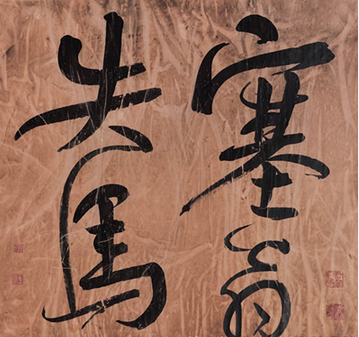 塞翁
失馬